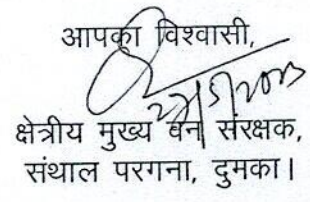 आपका विश्वासी,
क्षेत्रीय मुख्य वन संरक्षक,
संथाल परगना, दुमका।